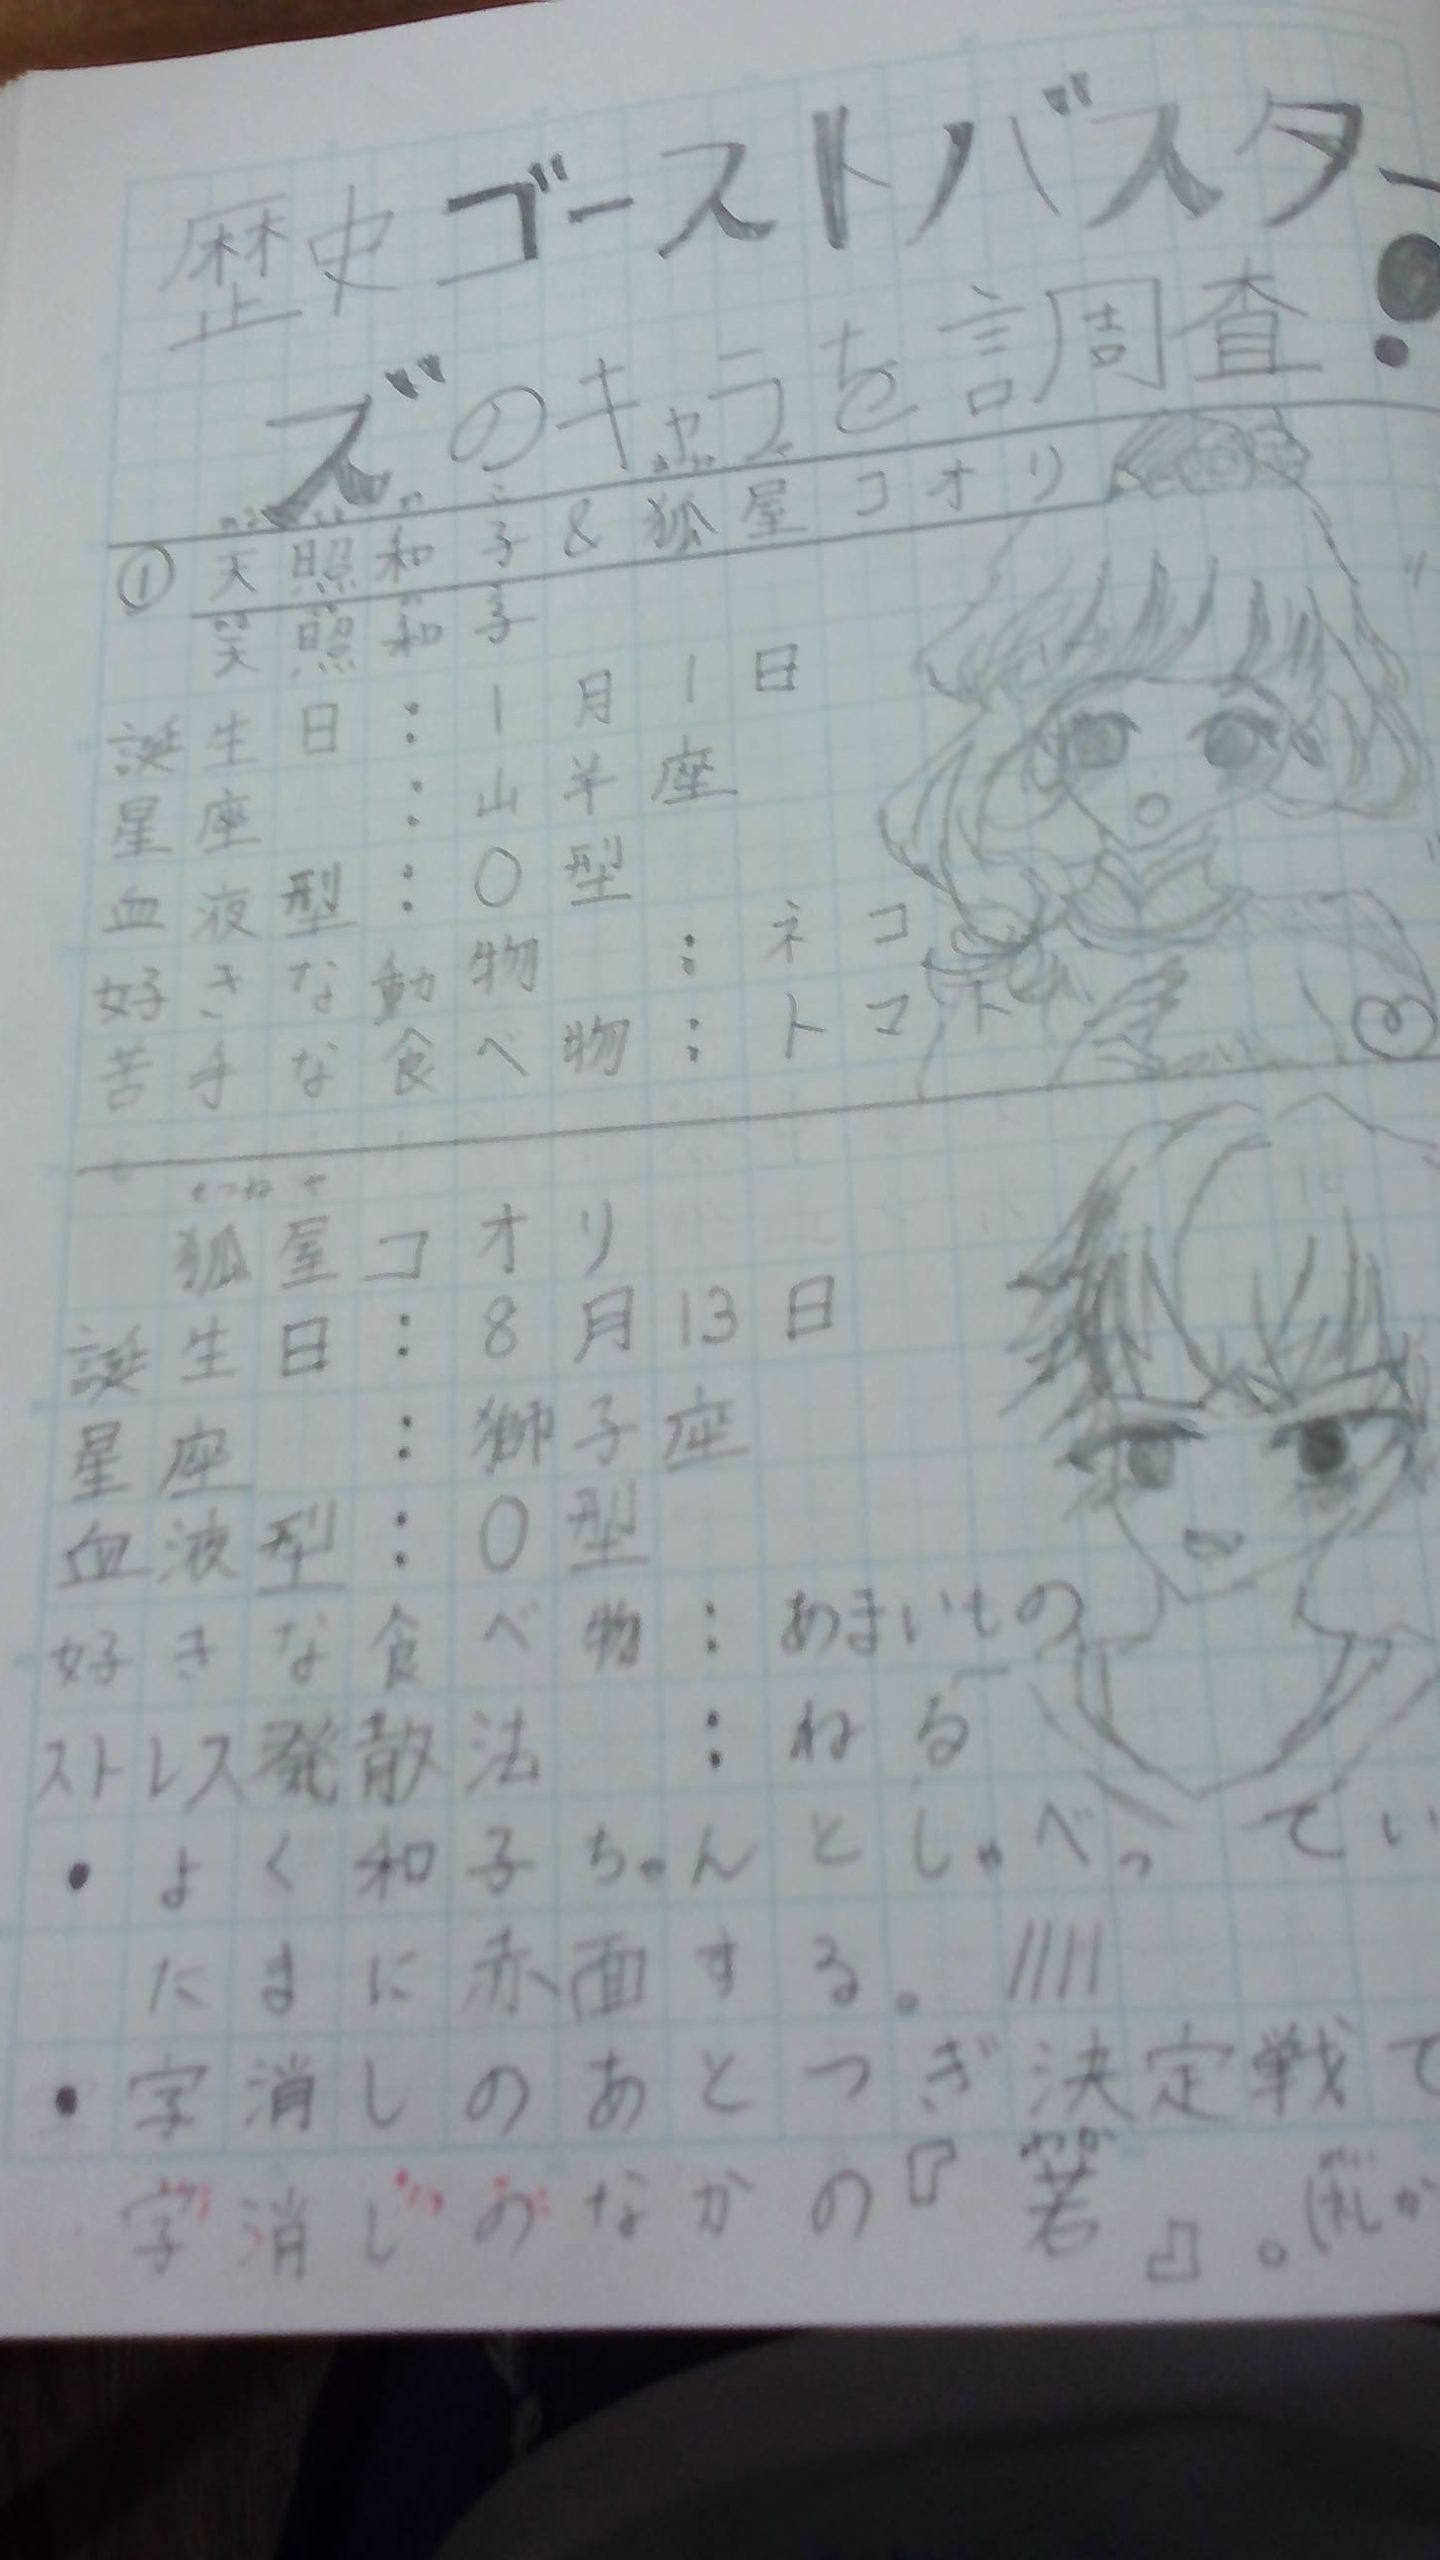 歴史ゴーストバスター
ズのキャラを調査!
①天照和子&狐屋コオリ
天照和子
誕生日:1月1日
星座:山羊座
血液型:O型
好きな動物:ネコ
苦手な食べ物:トマト
きつねや
狐屋コオリ
誕生日:8月13日
星座:獅子座
血液型:O型
好きな食べ物:あまいもの
ストレス発散法:ねる
・よく和子ちゃんとしゃべってい
たまに赤面する。////
・字消しのあとつぎ決定戦で
字消しのなかの『若』。(札か